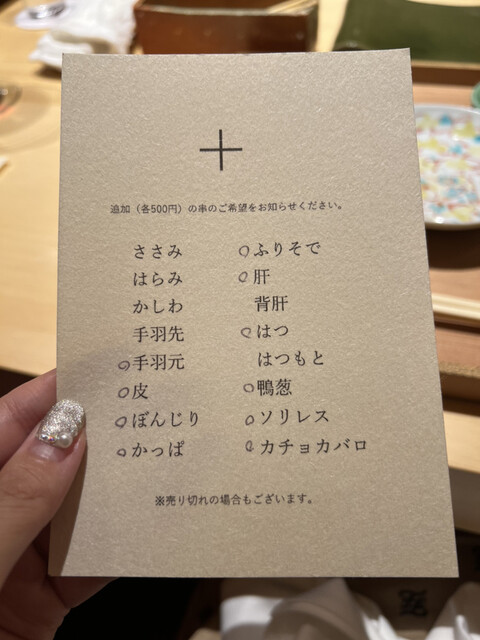 ＋
追加（各500円）の串のご希望をお知らせください。
ささみ
はらみ
かしわ
手羽先
○手羽元
○皮
○ぼんじり
○かっぱ
○ふりそで
○肝
背肝
○はつ
はつもと
○鴨葱
○ソリレス
○カチョカバロ
※売り切れの場合もございます。